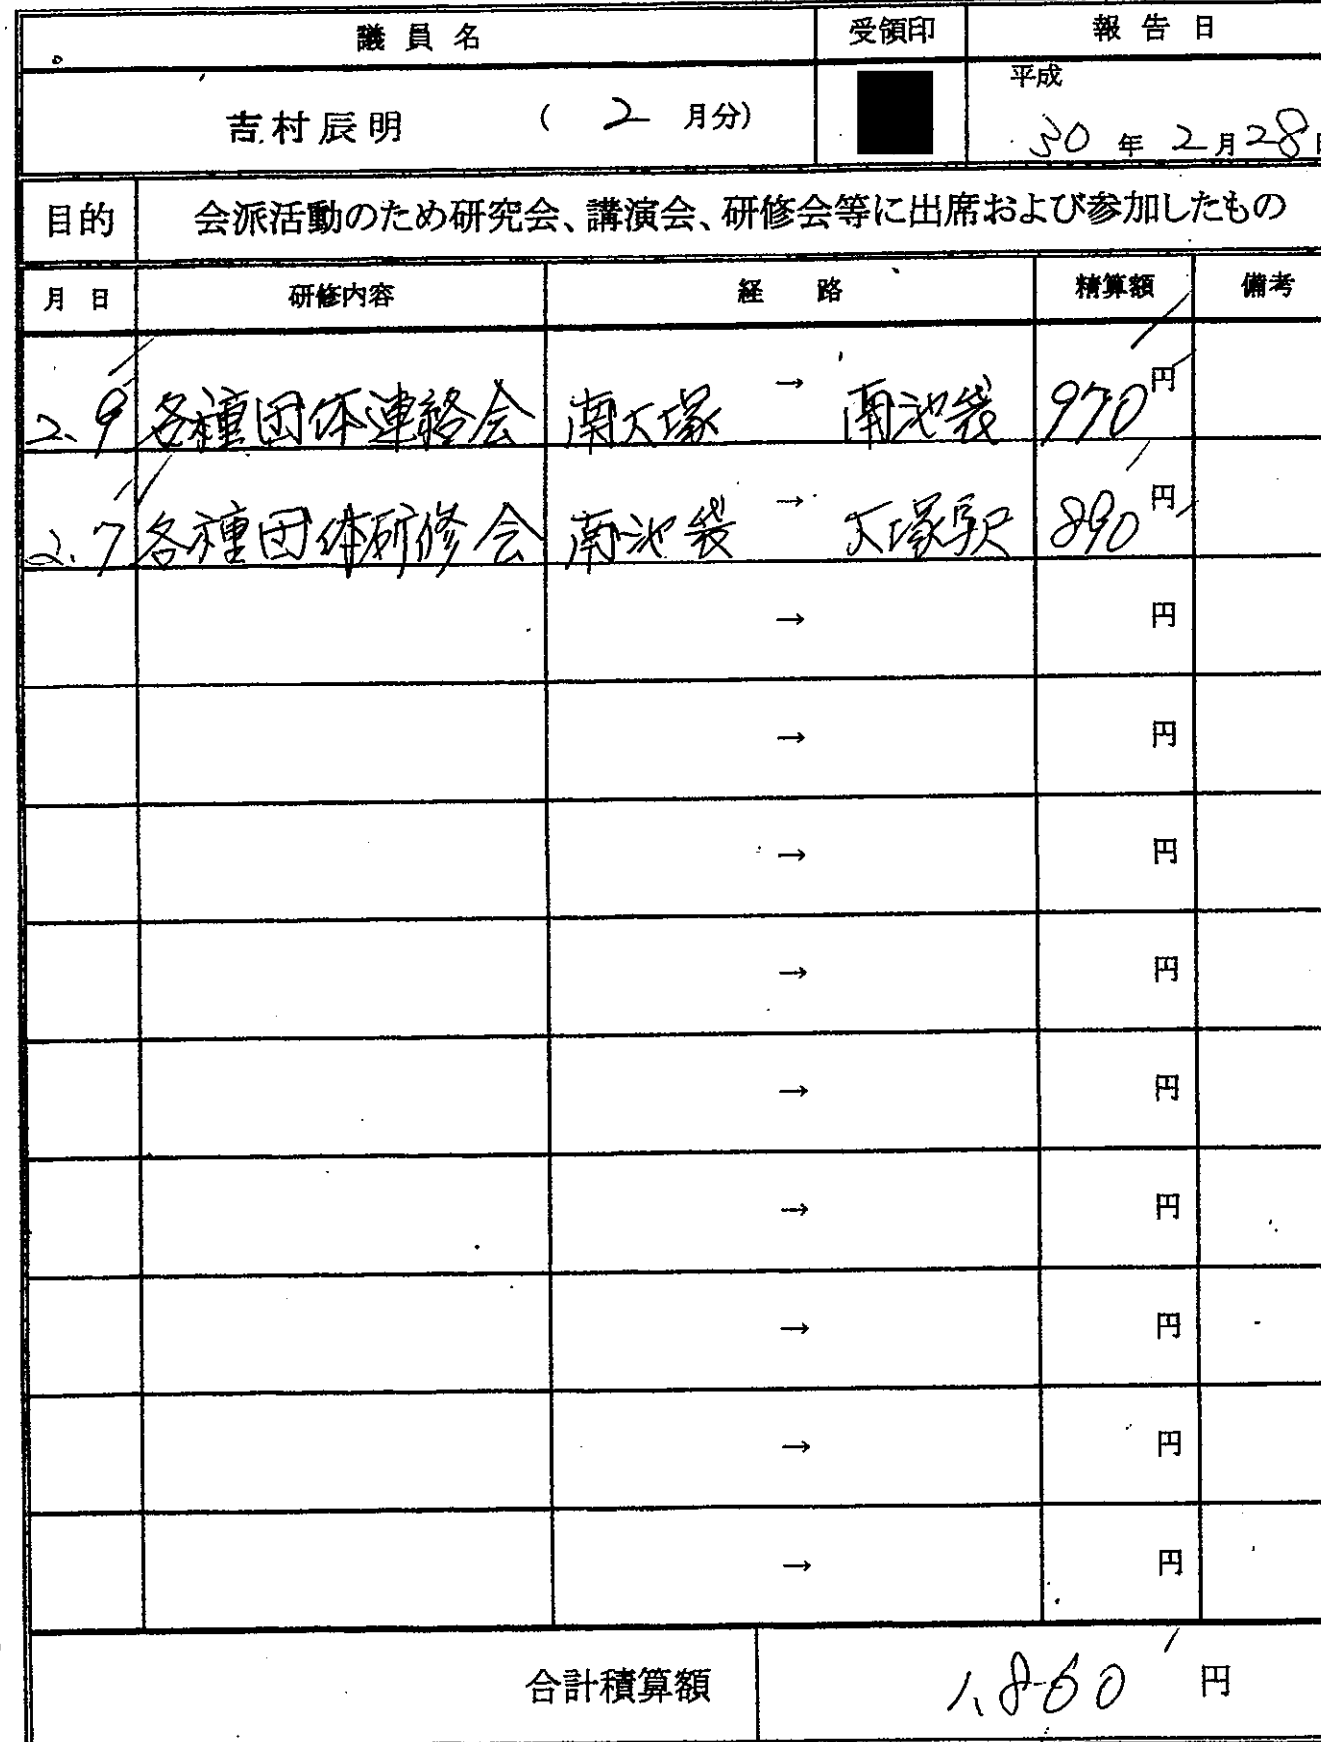 議員名 受領印 報告日
吉村辰明 ( 2 月分) 平成
30 年 2 月 28 日
目的 会派活動のため研究会、講演会、研修会等に出席および参加したもの
月 日 研修内容 経 路 精算額 備考
2.9 各種団体連絡会 南大塚 → 南池袋 970 円
2.7 各種団体研修会 南池袋 → 大塚駅 890 円
→ 円
→ 円
→ 円
→ 円
→ 円
→ 円
→ 円
→ 円
→ 円
合計積算額 1,860 円